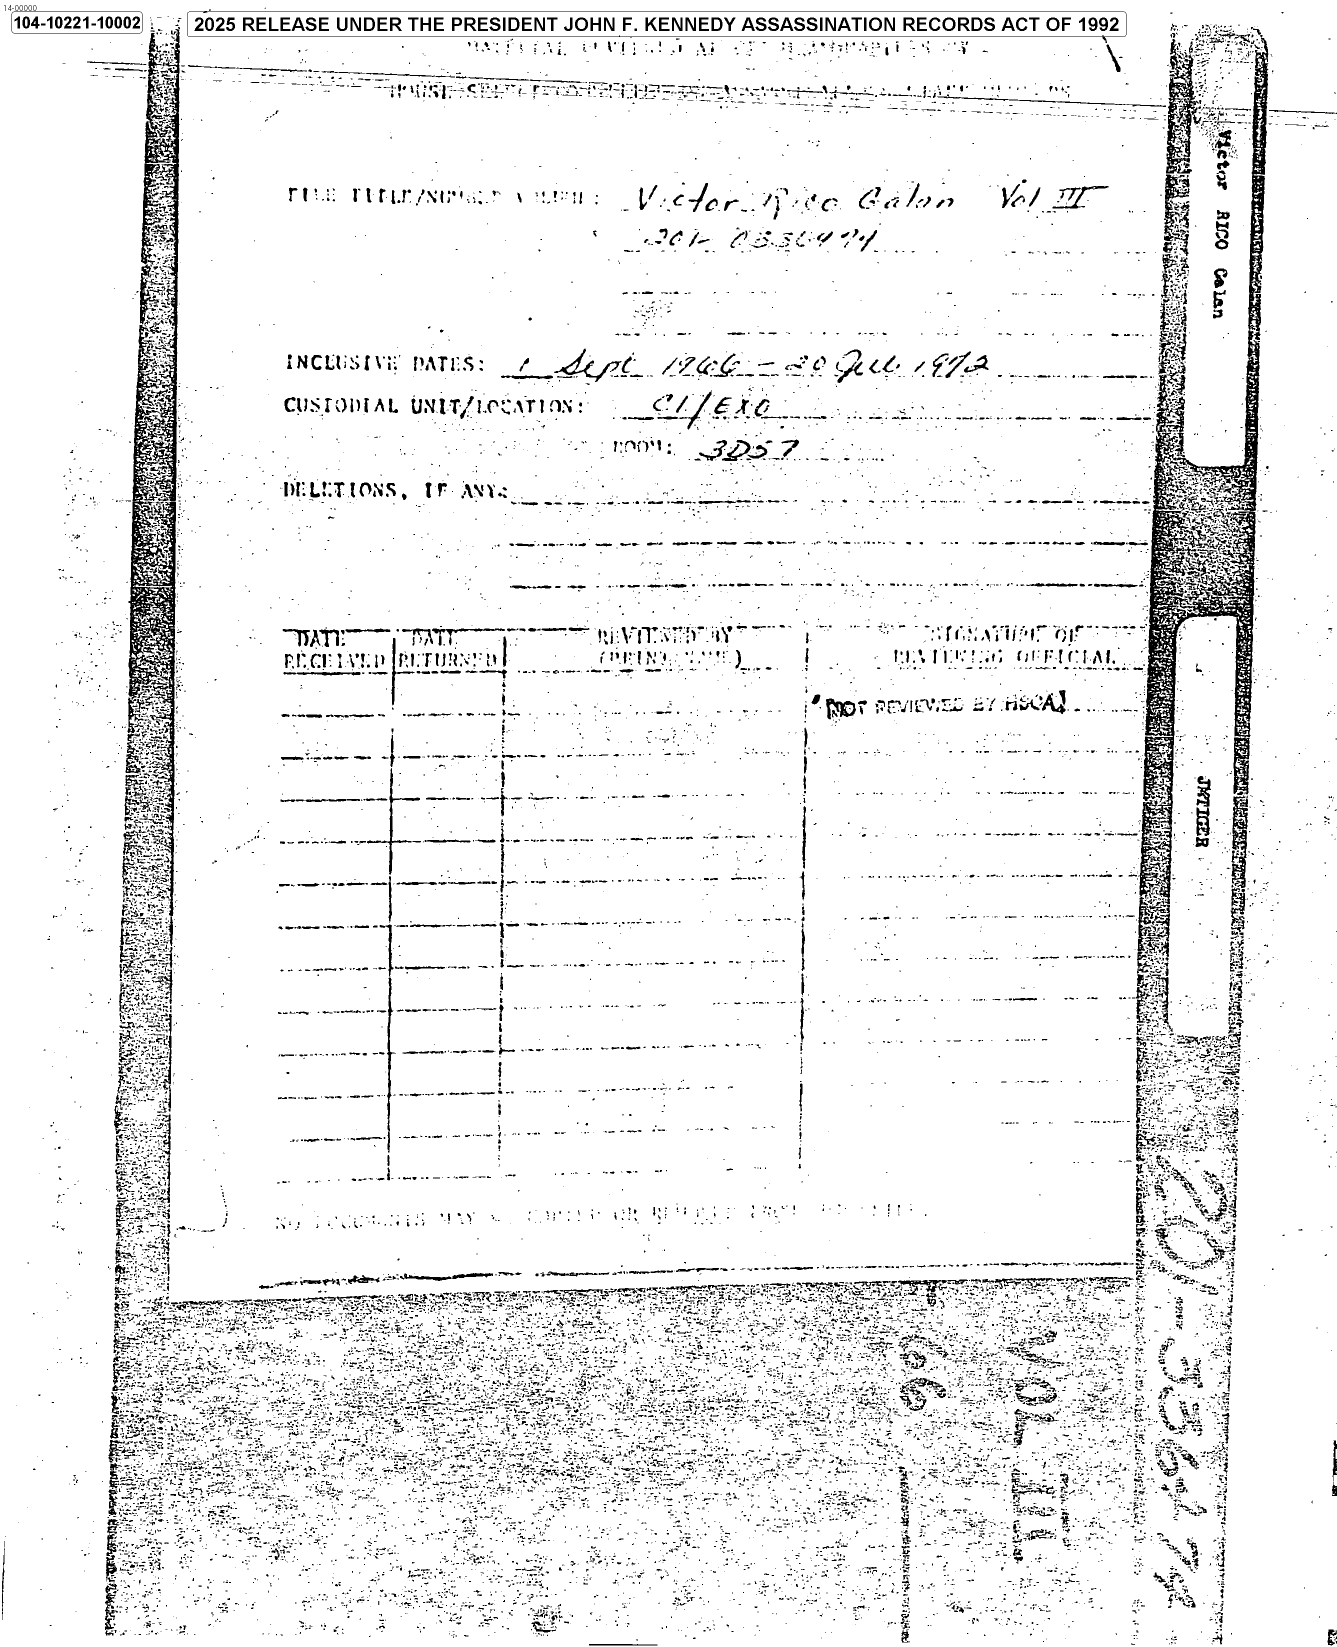 14-00000
104-10221-10002
2025 RELEASE UNDER THE PRESIDENT JOHN F. KENNEDY ASSASSINATION RECORDS ACT OF 1992
FILE TITLE/NUMBER/VOLUME: Victor Rico Galan Vol III
INCLUSIVE DATES: 1 Sept 1966 - 20 Jul 1972
CUSTODIAL UNIT/LOCATION: CI/EXO
ROOM: 3D57
DELETIONS, IF ANY:
DATE RECEIVED
DATE RETURNED
REVIEWED BY (PRINT NAME)
SIGNATURE OF REVIEWING OFFICIAL
NOT REVIEWED BY HSCA
NO DOCUMENTS MAY BE COPIED OR REMOVED FROM THIS FILE.
Victor RICO Galan
JMTIGER
VOL III
66